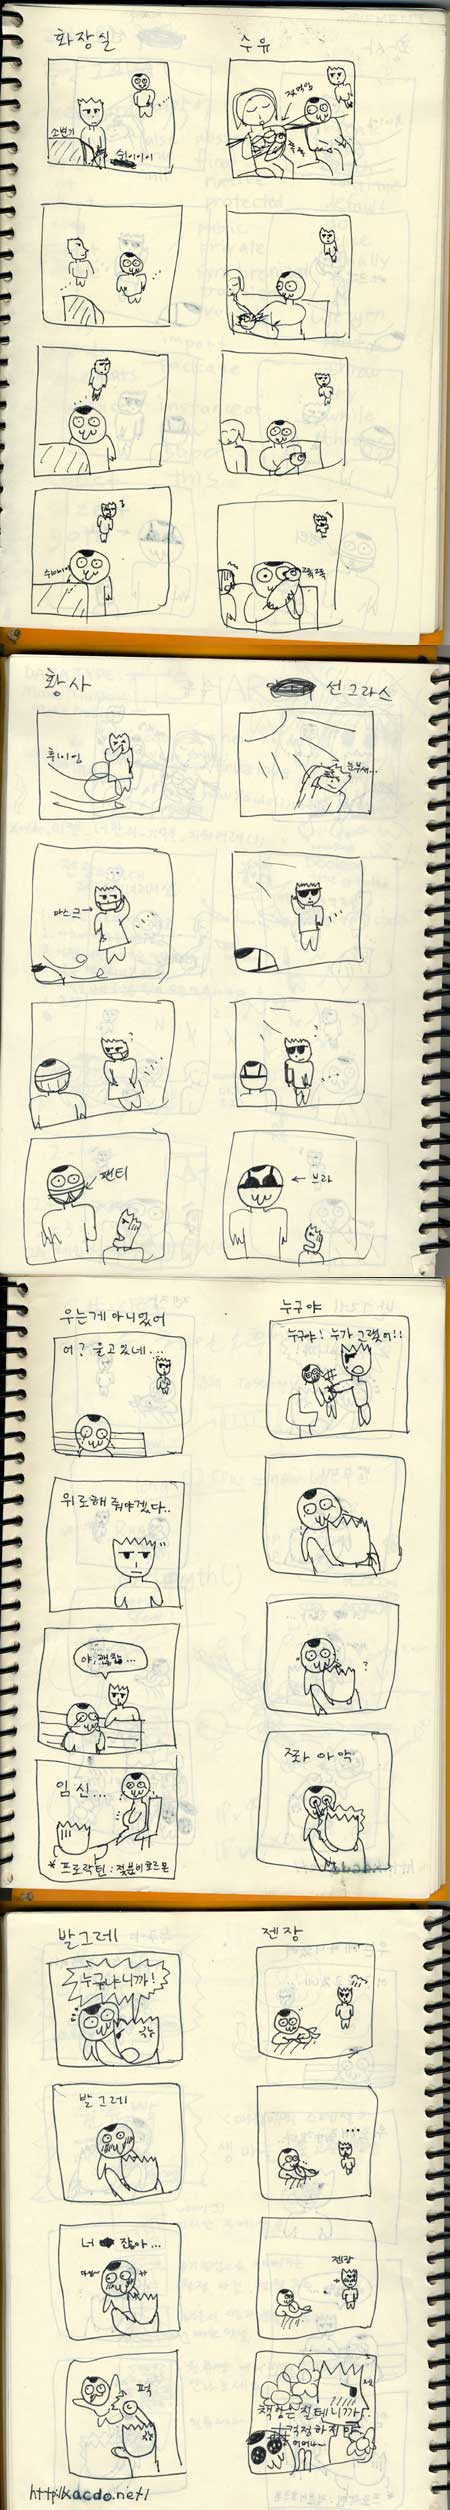 화장실
소변기
쉬이이이
수유
젖먹임
쭉쭉
황사
휘이잉
마스크
팬티
선그라스
눈부셔...
브라
우는게 아니었어
어? 울고있네...
위로해 줘야겠다..
야, 괜찮...
임신...
* 프로락틴 : 젖분비호르몬
누구야
누구야! 누가 그랬어!!
좌아악
발그레
누구냐니까!
발그레
너 잖아...
퍽
젠장
...
젠장
책임은 질테니까..
걱정하지마
어머나~
http://xacdo.net/